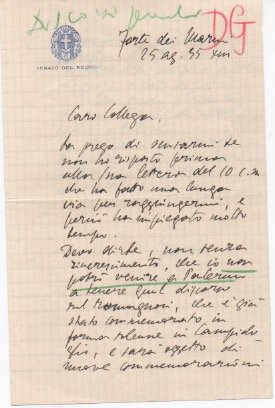 Discorso
DG
SENATO DEL REGNO
Forte dei Marmi
25 ag. 35 XIII
Caro Collega,
La prego di scusarmi se
non ho risposto prima
alla Sua lettera del 10 c.m
che ha fatto una lunga
via per raggiungermi, e
perciò ha impiegato molto
tempo.
Devo dirle, non senza
rincrescimento, che io non
potrò venire a Palermo
a tenere quel discorso
sul Romagnosi, che è già
stato commemorato in
forma solenne in Campido
glio, e sarà oggetto di
nuove commemorazioni